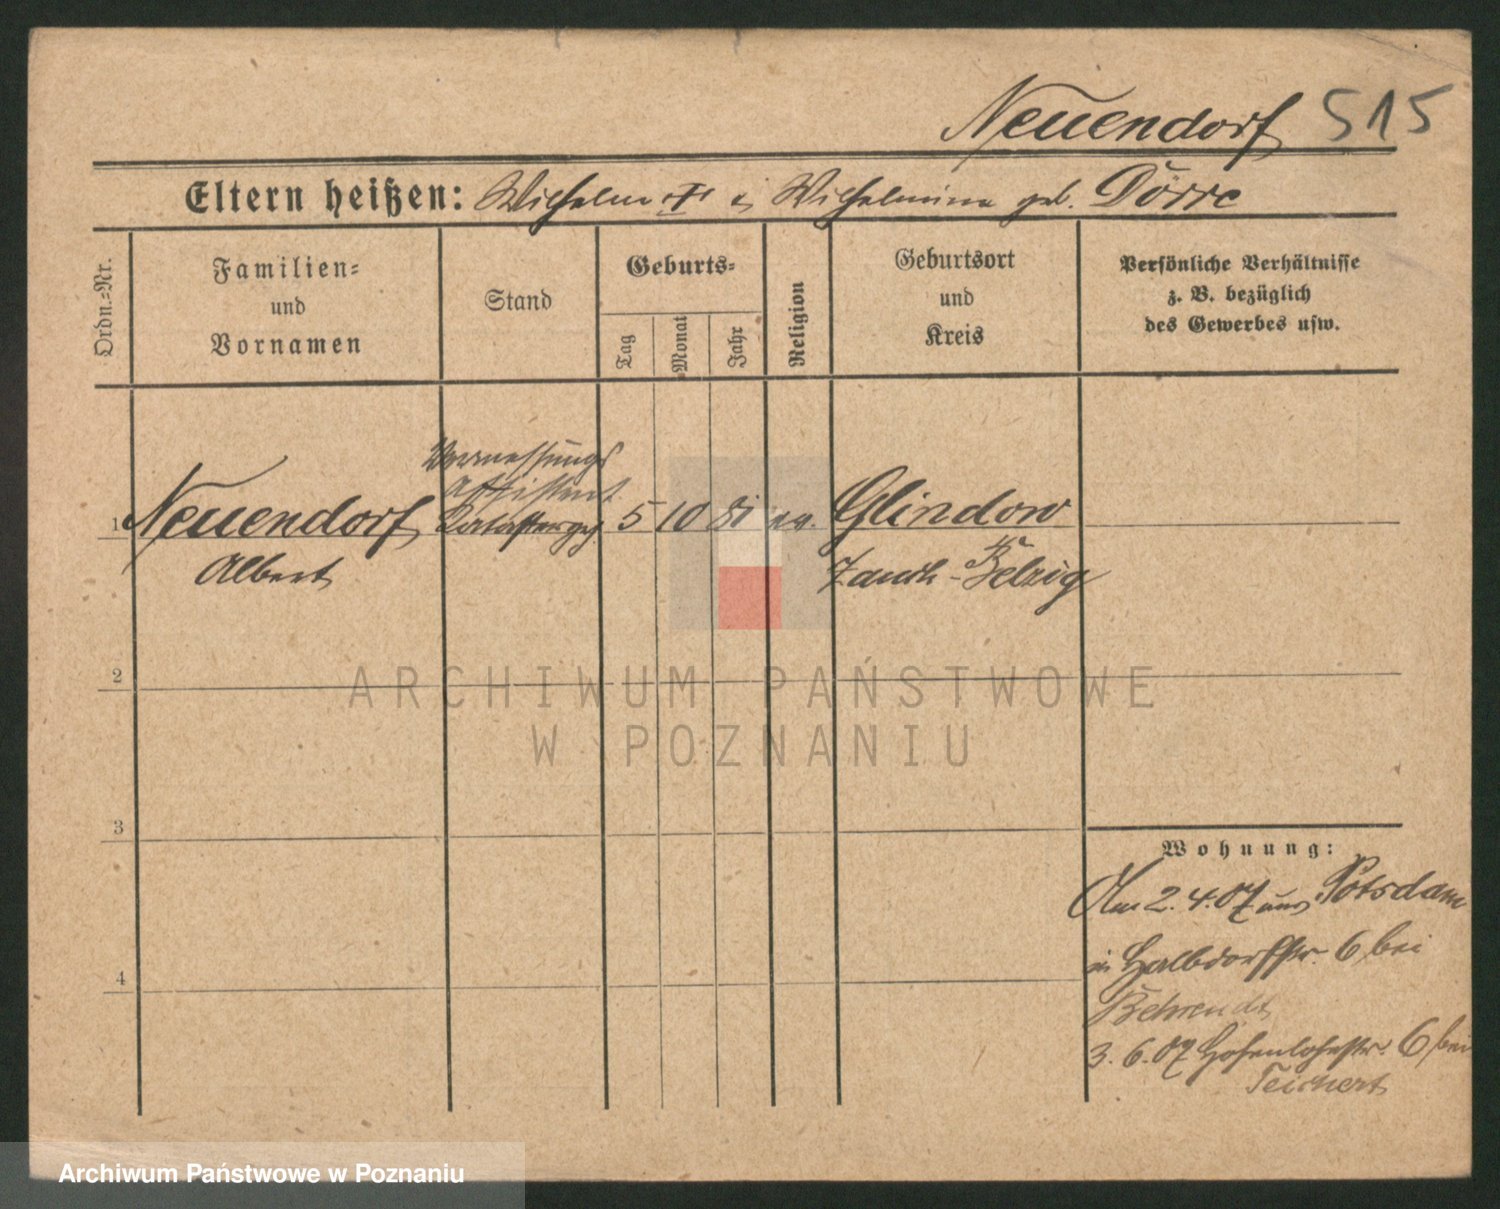 Neuendorf 515
Eltern heißen: Wilhelm † & Wilhelmine geb. Dörre
Ordn.=Nr.
Familien=
und
Vornamen
Stand
Geburts=
Tag
Monat
Jahr
Religion
Geburtsort
und
Kreis
Persönliche Verhältnisse
z. B. bezüglich
des Gewerbes usw.
Vermessungs
Assistent
1 Neuendorf Katastergeh. 5 10 81 ev. Glindow
Albert Zauch-Belzig
2
ARCHIWUM PAŃSTWOWE
W POZNANIU
3
Wohnung:
Am 2.4.07 aus Potsdam
in Halbdorfstr. 6 bei
4
Behrendt
3.6.07 Hohenlohestr. 6 bei
Teichert
Archiwum Państwowe w Poznaniu